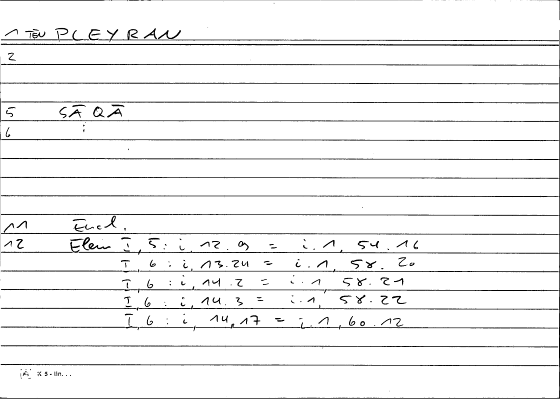 1 TEU PLEYRAN
2
5 SĀQĀ
6 :
11 Eucl.
12 Elem I, 5 : i, 12.9 = i.1, 54.16
I, 6 : i, 13.24 = i.1, 58.20
I, 6 : i, 14.2 = i.1, 58.21
I, 6 : i, 14.3 = i.1, 58.22
I, 6 : i, 14.17 = i.1, 60.12